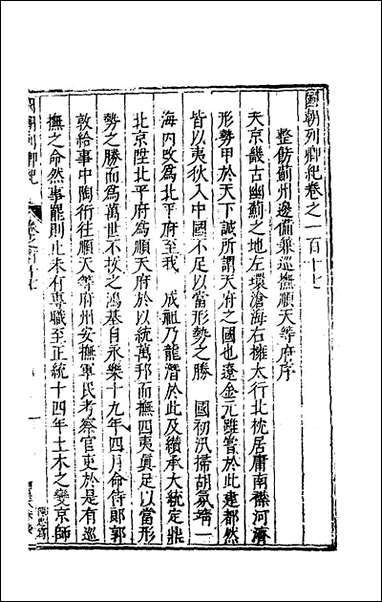 國朝列卿紀卷之一百十七
整飭薊州邊備兼巡撫順天等府序
天京畿古幽薊之地左環滄海右擁太行北枕居庸南襟河濟
形勢甲於天下誠所謂天府之國也遼金元雖嘗於此建都然
皆以夷狄入中國不足以當形勢之勝 國初汛掃胡氛靖一
海內改為北平府至我 成祖乃龍潛於此及纘承大統定鼎
北京陞北平府為順天府於以統萬邦而撫四夷眞足以當形
勢之勝而為萬世不拔之鴻基自永樂十九年四月命侍郎郭
敦給事中陶衎往順天等府州安撫軍民考察官吏於是有巡
撫之命然事罷則止未有專職至正統十四年土木之變京師
國朝列卿紀